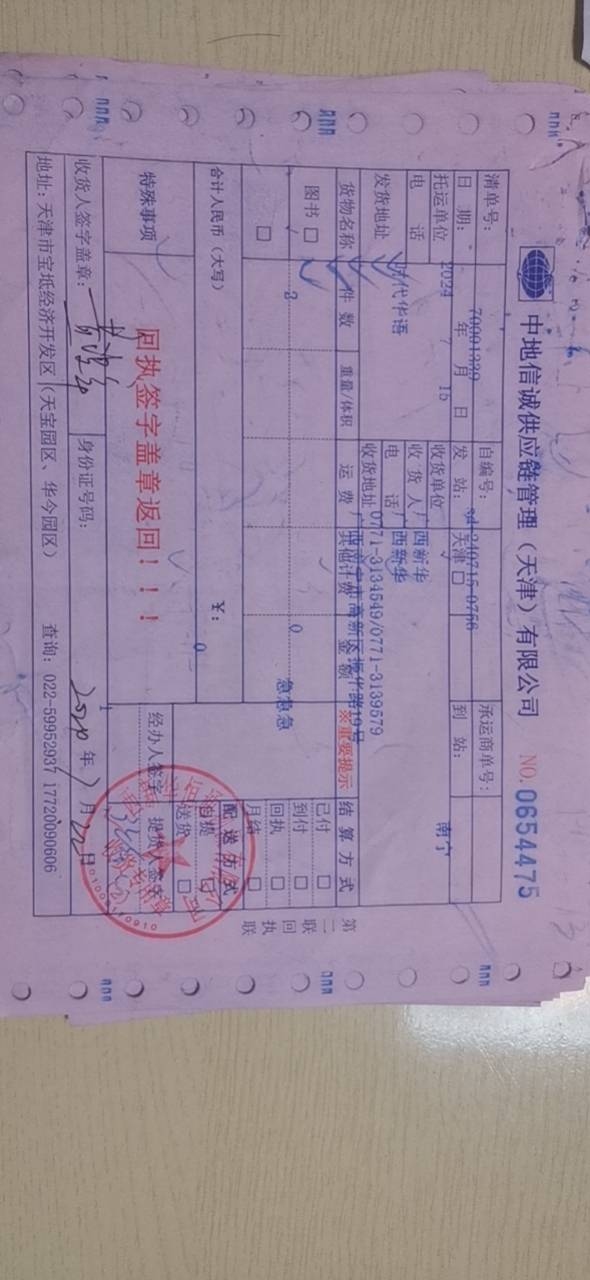 中地信诚供应链管理（天津）有限公司 NO. 0654475
清单号： 70001339 自编号： 240715-0756 承运商单号：
日期： 2024 年 7 月 15 日 发站： 天津 到站： 南宁
托运单位 时代华语 收货单位 广西新华
电话 收货人 广西新华
电话 0771-3134549/0771-3139579
发货地址 收货地址
货物名称 件数 重量/体积 运费 其他计费 金额 ※重要提示 结算方式
图书 □ 3 0 急急急 已付 □
到付 □
□ 回执 □
月结 □
合计人民币（大写） ￥： 0 配送方式
自提 □
送货 □
特殊事项 回执签字盖章返回！！！ 经办人签字 提货人签字
收货人签字盖章： 身份证号码： 年 月 日
地址：天津市宝坻经济开发区（天宝园区、华今园区） 查询：022-59952937 17720090606
第二联 回执联